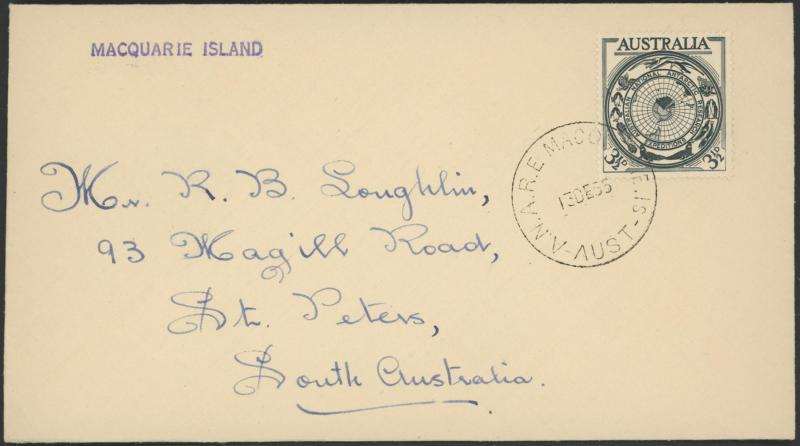 MACQUARIE ISLAND
AUSTRALIA
AUSTRALIAN NATIONAL ANTARCTIC RESEARCH EXPEDITIONS
3½D 3½D
A.N.A.R.E. MACQ E.IS. AUST
13DE55
Mr. R. B. Loughlin,
93 Magill Road,
St. Peters,
South Australia.